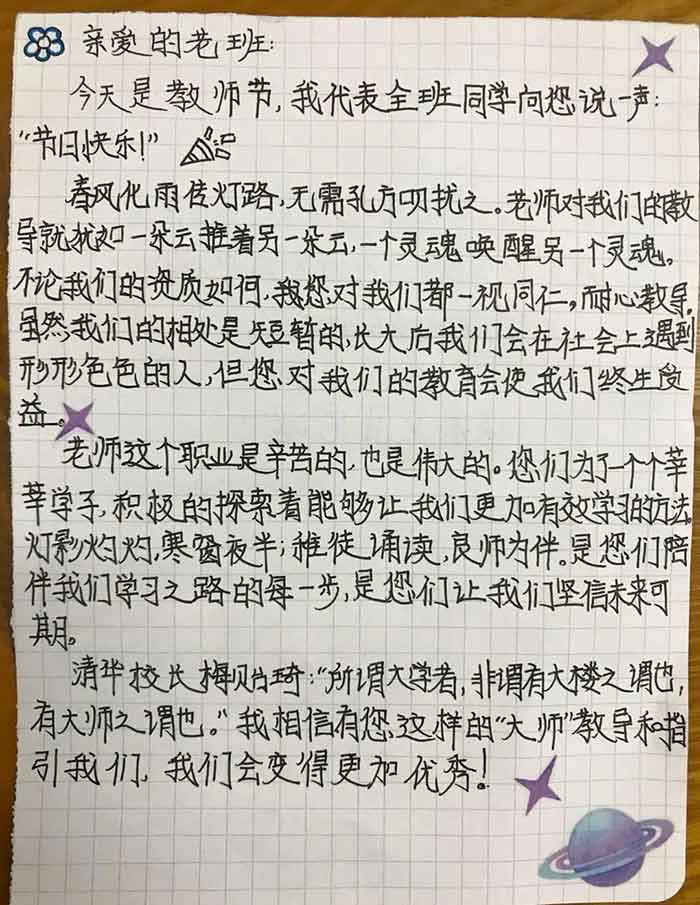 亲爱的老班:
今天是教师节,我代表全班同学向您说一声:
“节日快乐!”
春风化雨传灯路,无需孔方呗扰之。老师对我们的教
导就犹如一朵云推着另一朵云,一个灵魂唤醒另一个灵魂。
不论我们的资质如何,我您对我们都一视同仁,耐心教导。
虽然我们的相处是短暂的,长大后我们会在社会上遇到
形形色色的人,但您对我们的教育会使我们终生受
益。
老师这个职业是辛苦的,也是伟大的。您们为了一个个莘
莘学子,积极的探索着能够让我们更加有效学习的方法
灯影灼灼,寒窗夜半;稚徒诵读,良师为伴。是您们陪
伴我们学习之路的每一步,是您们让我们坚信未来可
期。
清华校长梅贻琦:“所谓大学者,非谓有大楼之谓也,
有大师之谓也。”我相信有您这样的“大师”教导和指
引我们,我们会变得更加优秀!